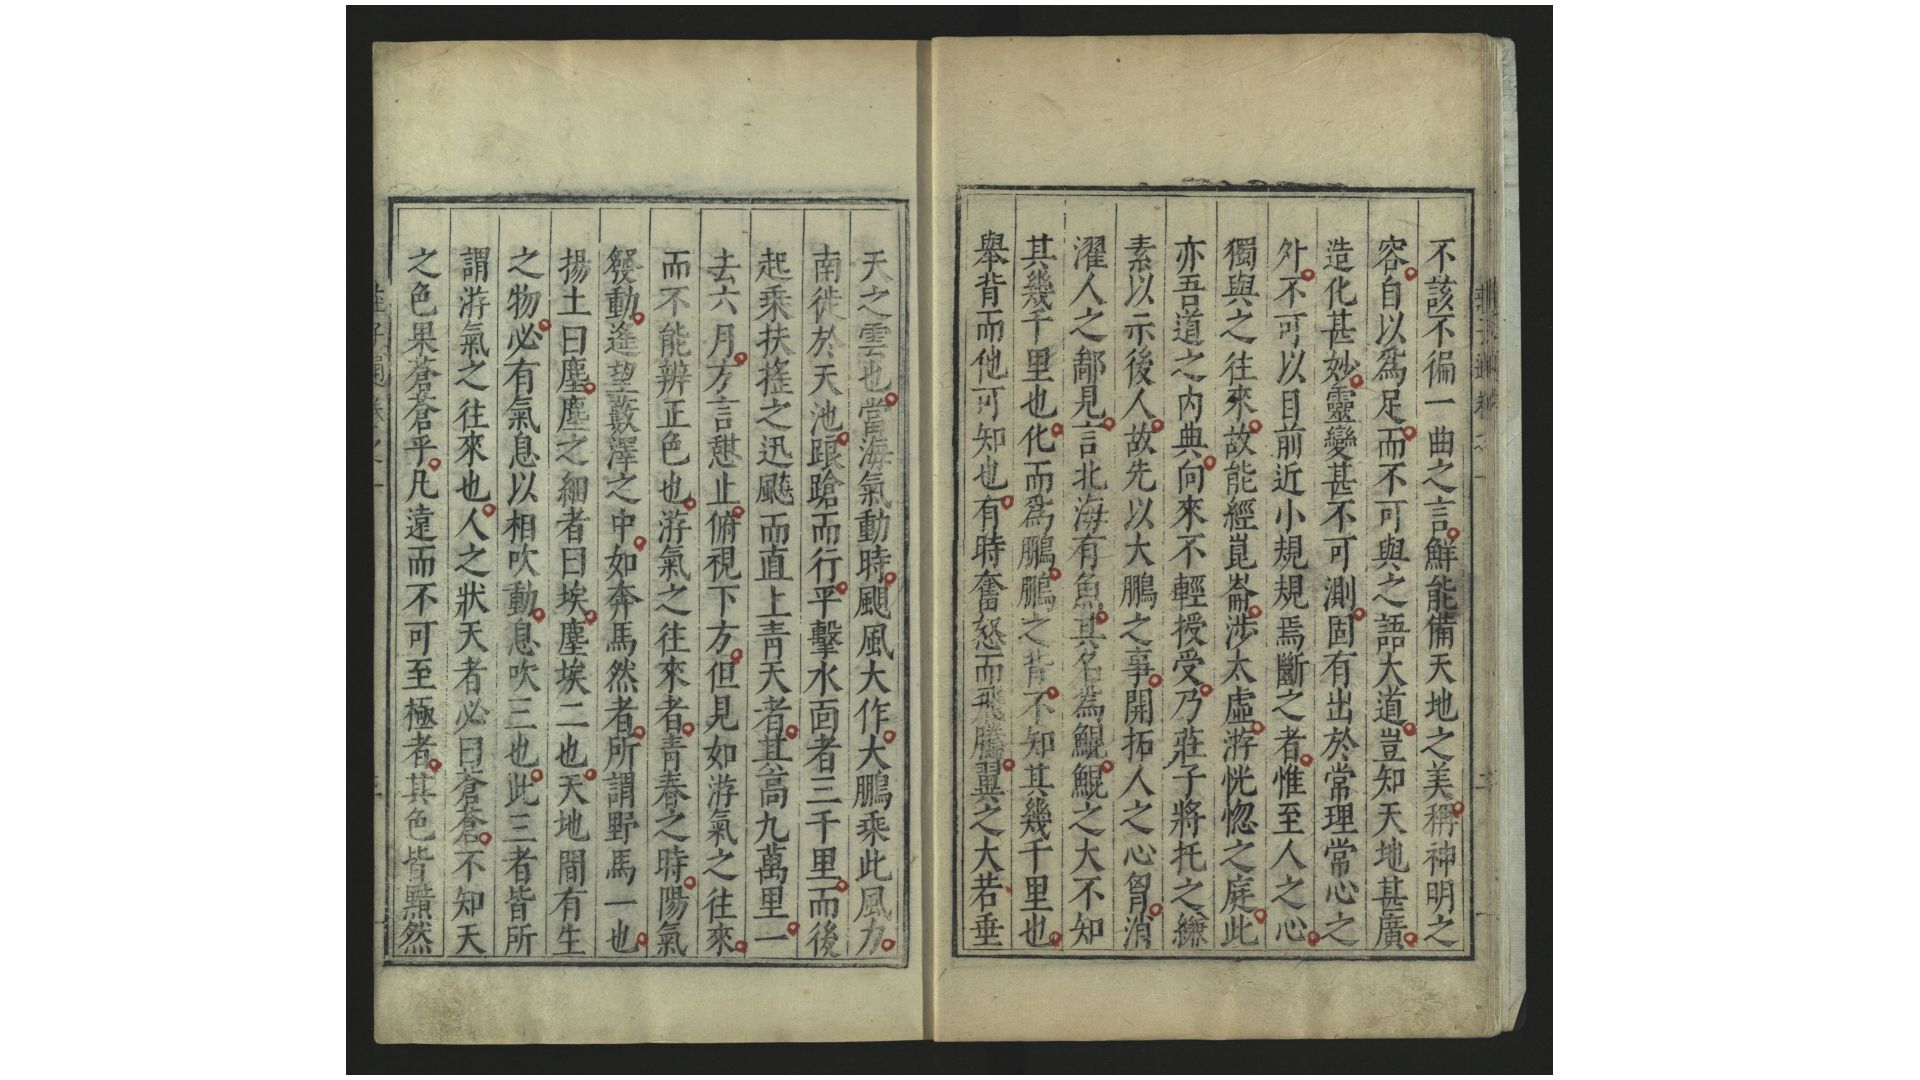 不該不徧一曲之言鮮能備天地之美稱神明之
容自以爲足而不可與之語大道豈知天地甚廣
造化甚妙靈變甚不可測固有出於常理常心之
外不可以目前近小規規焉斷之者惟至人之心
獨與之往來故能經崑崙涉太虛游恍惚之庭此
亦吾道之内典向來不輕授受乃莊子將托之
素以示後人故先以大鵬之事開拓人之心胷消
濯人之鄙見言北海有魚其名為鯤鯤之大不知
其幾千里也化而爲鵬鵬之背不知其幾千里也
舉背而他可知也有時奮怒而飛騰翼之大若垂
天之雲也當海氣動時颶風大作大鵬乘此風力
南徙於天池踉蹌而行平擊水面者三千里而後
起乘扶搖之迅飈而直上青天者其高九萬里一
去六月方言憇止俯視下方但見如游氣之往來
而不能辨正色也游氣之往來者青春之時陽氣
發動遙望藪澤之中如奔馬然者所謂野馬一也
揚土曰塵塵之細者曰埃塵埃二也天地間有生
之物必有氣息以相吹動息吹三也此三者皆所
謂游氣之往來也人之狀天者必曰蒼蒼不知天
之色果蒼蒼乎凡遠而不可至極者其色皆黯然